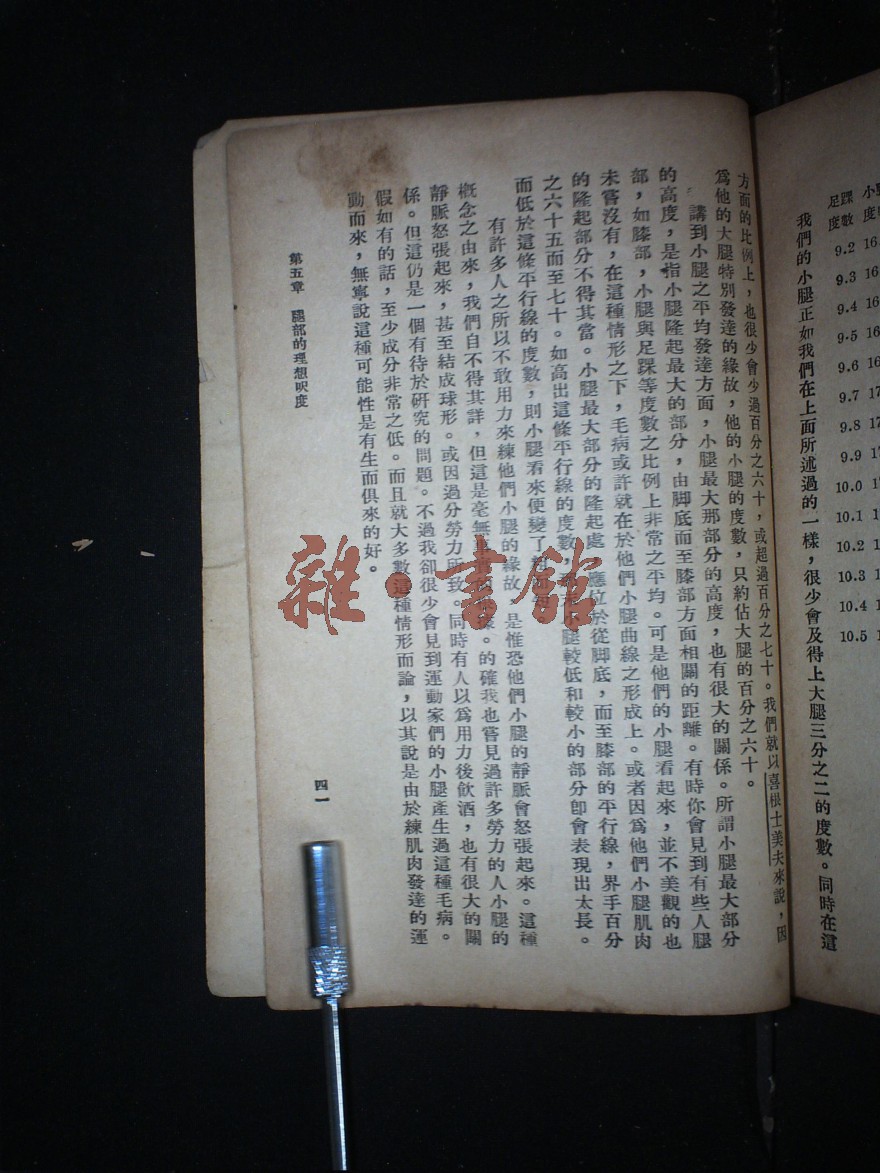 足踝 小
度數 度
9.2 16.
9.3 16.
9.4 16
9.5 16
9.6 16
9.7 17
9.8 17
9.9 17
10.0
10.1
10.2
10.3
10.4
10.5
我們的小腿正如我們在上面所述過的一樣，很少會及得上大腿三分之二的度數。同時在這
方面的比例上，也很少會少過百分之六十，或超過百分之七十。我們就以喜根士美夫來說，因
爲他的大腿特別發達的緣故，他的小腿的度數，只約佔大腿的百分之六十。
講到小腿之平均發達方面，小腿最大那部分的高度，也有很大的關係。所謂小腿最大部分
的高度，是指小腿隆起最大的部分，由脚底而至膝部方面相關的距離。有時你會見到有些人腿
部，如膝部，小腿與足踝等度數之比例上非常之平均。可是他們的小腿看起來，並不美觀的也
未嘗沒有，在這種情形之下，毛病或許就在於他們小腿曲線之形成上。或者因爲他們小腿肌肉
的隆起部分不得其當。小腿最大部分的隆起處，應位於從脚底，而至膝部的平行線，界乎百分
之六十五而至七十。如高出這條平行線的度數，腿較低和較小的部分卽會表現出太長。
而低於這條平行線的度數，則小腿看來便變了
有許多人之所以不敢用力來練他們小腿的緣故，是惟恐他們小腿的靜脈會怒張起來。這種
概念之由來，我們自不得其詳，但這是毫無。的確我也嘗見過許多勞力的人小腿的
靜脈怒張起來，甚至結成球形。或因過分勞力所致。同時有人以爲用力後飲酒，也有很大的關
係。但這仍是一個有待於研究的問題。不過我卻很少會見到運動家們的小腿產生過這種毛病。
假如有的話，至少成分非常之低。而且就大多數這種情形而論，以其說是由於練肌肉發達的運
動而來，無寧說這種可能性是有生而俱來的好。
第五章 腿部的理想呎度
四一
雜·書館